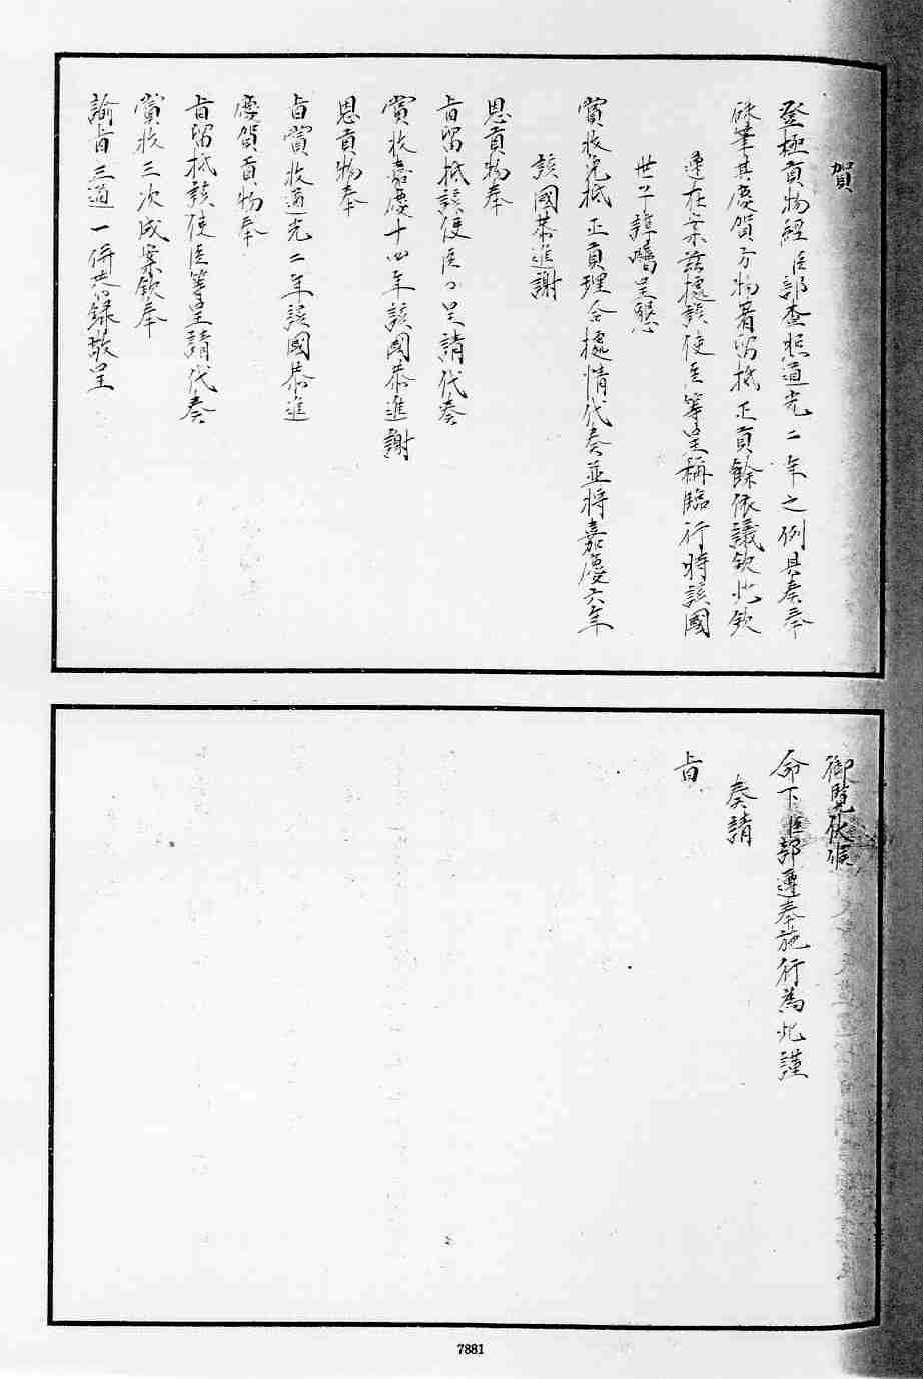 賀
登極貢物經臣部查照道光二年之例具奏奉
硃筆其慶賀方物著留抵正貢餘依議欽此欽
遵在案茲據該使臣等呈稱臨行時該國
世子諄囑呈懇
賞收免抵正貢理合據情代奏並將嘉慶六年
該國恭進謝
恩貢物奉
旨留抵該使臣呈請代奏
賞收嘉慶十四年該國恭進謝
恩貢物奉
旨賞收道光二年該國恭進
慶賀貢物奉
旨留抵該使臣等呈請代奏
賞收三次成案欽奉
諭旨三道一併恭錄敬呈
御覽伏候
命下臣部遵奉施行為此謹
奏請
旨
7881